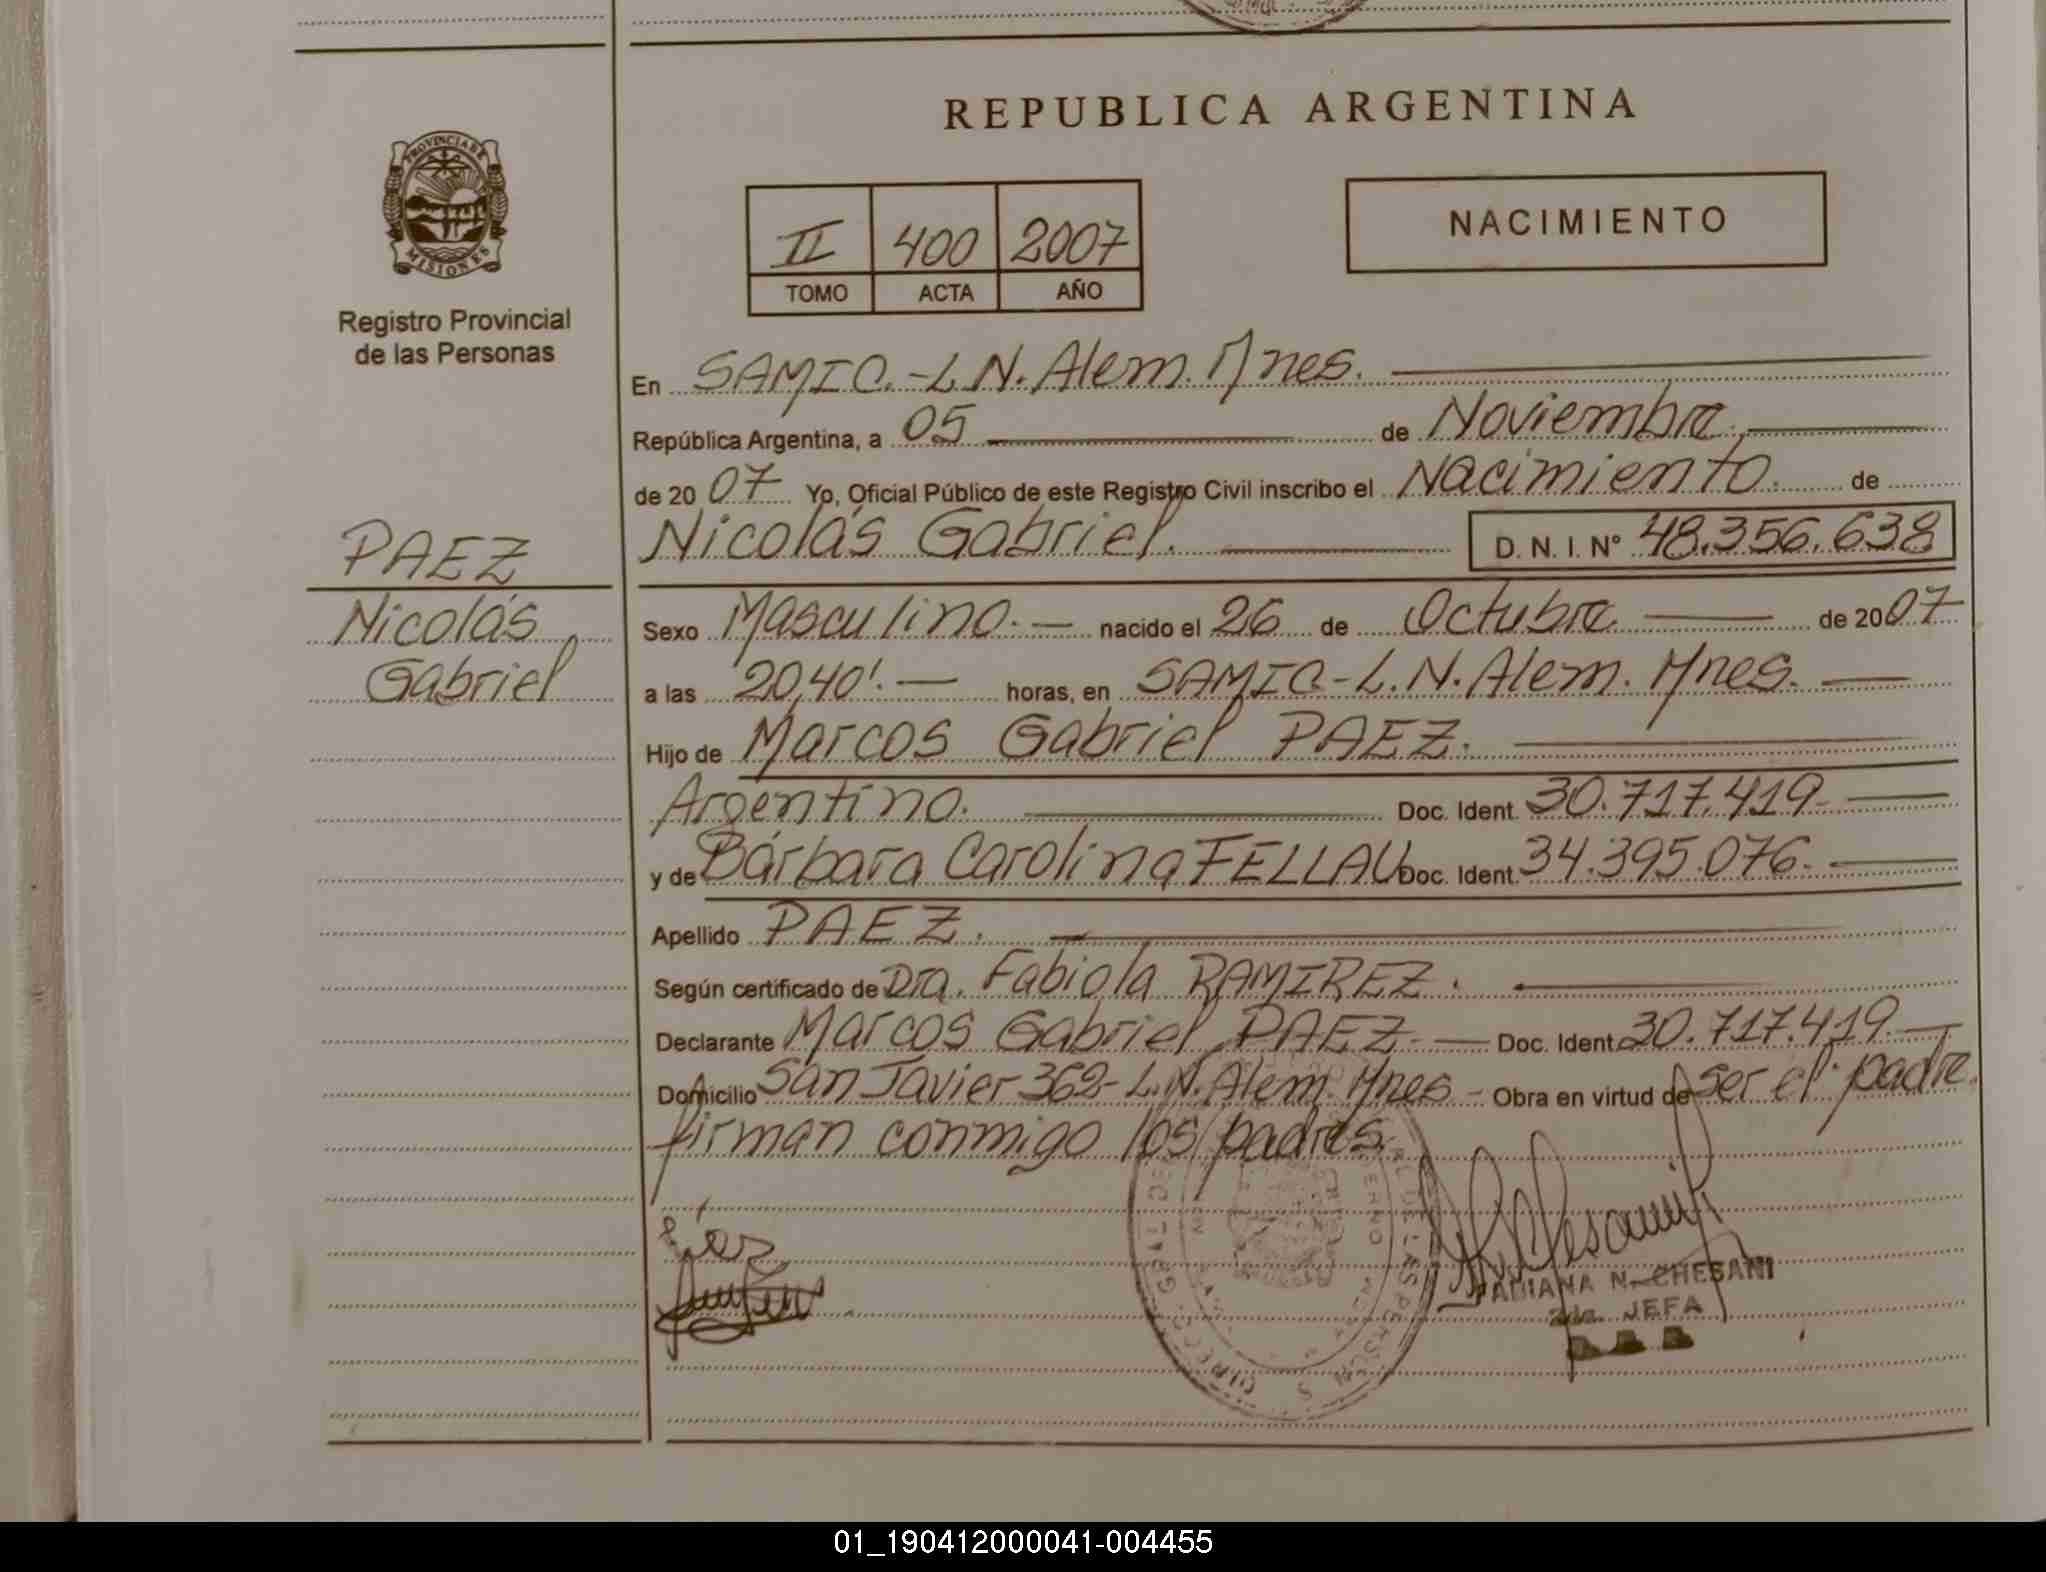 REPUBLICA ARGENTINA
PROVINCIA DE
MISIONES
Registro Provincial
de las Personas
II 400 2007
TOMO ACTA AÑO
NACIMIENTO
En SAMIC.-L.N. Alem. Mnes.
República Argentina, a 05 de Noviembre.
de 20 07 Yo, Oficial Público de este Registro Civil inscribo el Nacimiento. de
PAEZ
Nicolás Gabriel. D. N. I. Nº 48.356.638
Nicolás
Gabriel
Sexo Masculino.- nacido el 26 de Octubre de 2007
a las 20,40'.- horas, en SAMIC-L.N. Alem. Mnes.-
Hijo de Marcos Gabriel PAEZ.
Argentino. Doc. Ident. 30.717.419-
y de Bárbara Carolina FELLAU Doc. Ident. 34.395.076.-
Apellido PAEZ.
Según certificado de Dra. Fabiola RAMIREZ.
Declarante Marcos Gabriel PAEZ.- Doc. Ident. 30.717.419.-
Domicilio San Javier 362-L.N. Alem. Mnes - Obra en virtud de ser el padre.
firman conmigo los padres.
N. CHESANI
2da. JEFA
01_190412000041-004455